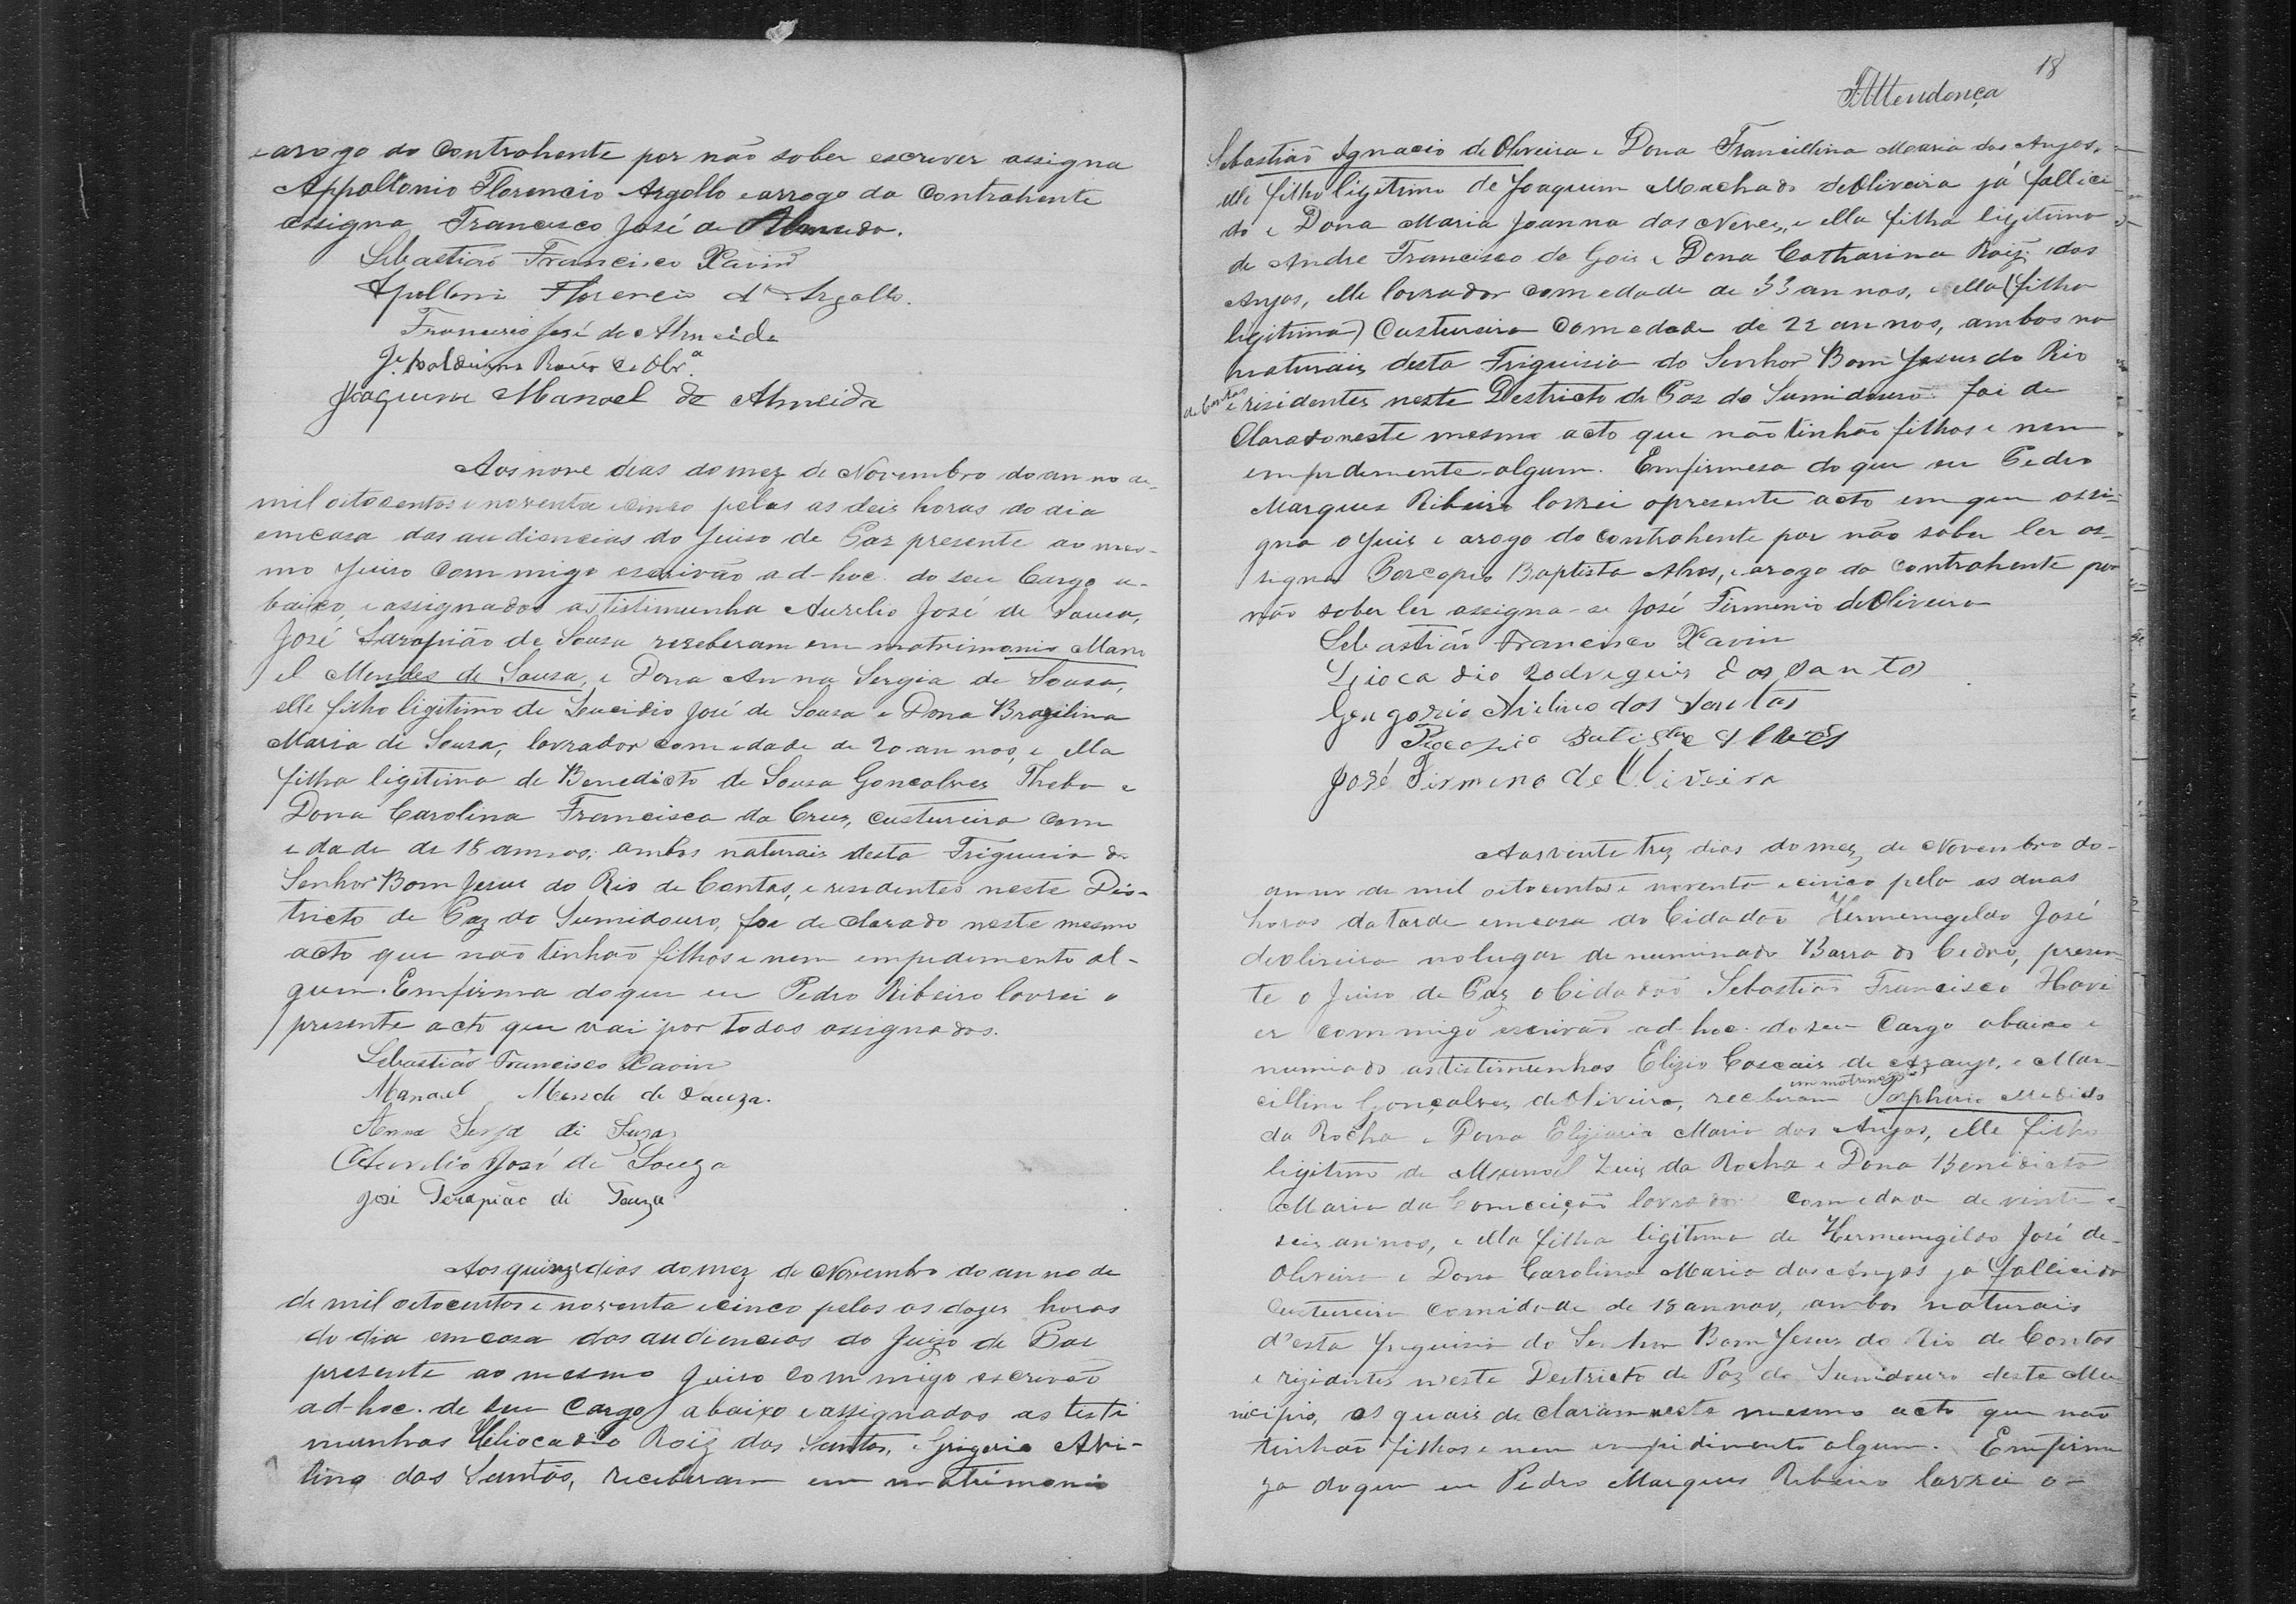 e arogo do Contrahente por não saber escrever assigna
Appoltonio Florencio Argollo e arrogo da Contrahente
assigna Francisco José de Almeida.
Sebastião Francisco Xavier
Apollonio Florencio d'Argollo.
Francisco José de Almeida
Joaquim Manoel de Almeida
Aos nove dias do mez de Novembro do anno de
mil oitocentos e noventa e cinco pelas as deis horas do dia
em casa das audiencias do Juiso de Paz presente ao mes-
mo Juiso Commigo escrivão ad-hoc. do seu Cargo a-
baixo, e assignados as tistimunha Aurelio José de Sousa,
José Sarapião de Sousa reseberam em matrimonio Mano
el Mendes de Sousa, e Dona Anna Sergia de Sousa,
elle filho ligitimo de José de Sousa e Dona Brazilina
Maria de Sousa, lavrador com edade de 20 annos, e ella
filha ligitima de Benedicto de Sousa Goncalves Theba e
Dona Carolina Francisca da Cruz, custureira com
edade de 18 annos, ambos naturais desta Friguisia do
Senhor Bom Jesus do Rio de Contas, e residentes neste Dis-
tricto de Paz do Sumidouro, foi declarado neste mesmo
acto que não tinhão filhos e nem empedimento al-
gum. Emfirma do que eu Pedro Ribeiro lavrei o
presente acto que vai por todos assignados.
Sebastião Francisco Xavier
Manoel Mende de Sauza.
Anna Serja di Suza
Aurelio José de Souza
José Serapião di Souza
Aos quinze dias do mez de Novembro do anno de
de mil oitocentos e noventa e cinco pelas as doges horas
do dia em casa das audiencias do Juizo de Paz
presente ao mesmo Juiso Commigo escrivão
ad-hoc. de seu Cargo abaixo e assignados as testi
munhas Heliocadio Roiz dos Santos, e Grigorio Avi-
lino dos Santos, receberam em matrimonio
18
Mendonça
Sebastião Ignacio de Oliveira e Dona Francillina Maria dos Anjos,
elle filho ligitimo de Joaquim Machado de Oliveira já fallici-
do e Dona Maria Joanna das Neves, e ella filha ligitima
de Andre Francisco de Gois e Dona Catharina Roiz dos
Anjos, elle lavrador com edade de 33 annos, e ella (filha
legitima) Custureira Com edade de 22 annos, ambos na
naturais desta Friguisia do Senhor Bom Jesus do Rio
de Contas e risidentes neste Destricto de Paz do Sumidouro foi de
Clarado neste mesmo acto que não tinhão filhos e nem
empedimente algum. Emfirmesa do que eu Pedro
Marques Ribeiro lavrei o presente acto em que assi-
gna o Juis e arogo do contrahente por não saber ler as-
signa Porcopio Baptista Alves, e arogo da contrahente por
não saber ler assigna-se José Firmenio de Oliveira
Sebastião Francisco Xavier
Liocadio Rodregueis dos Santos
Gregorio Avilino dos Santos
Procopio Batista Alves
José Firmino de Oliveira
Aos vinte trez dias do mez de Novembro do-
anno de mil oitocentos e noventa e cinco pela as duas
horas da tarde em casa do Cidadão Hermenegeldo José
de Olineira no lugar denuminado Barra do Cedro, presen-
te o Juiso de Paz o Cidadão Sebastião Francisco Xavi
er Commigo escrivão ad-hoc. do seu Cargo abaixo e
numiado as tistimunhas Elizio Cascais de Araujo, e Mar-
cillino Gonçalves de Oliveira, receberam em matrimonio Porpherio Medido
da Rocha e Dona Eligiaria Maria dos Anjos, elle filho
ligitimo de Manoel Luis da Rocha e Dona Benidicta
Maria da Comceição lavrador com edade de vinte e
seis annos, e ella filha ligitima de Hermenigildo José de-
Oliveira e Dona Carolina Maria dos Anjos ja fallicida
Custureira Comidade de 18 annos, ambos naturais
d'esta friguisia do Senhor Bom Jesus do Rio de Contas
e rizidentes neste Destricto de Paz do Sumidouro deste Mu-
nicipio, os quais declaram neste mesmo acto que não
tinhão filhos e nem empidimento algum. Emfirme
za do que eu Pedro Marques Ribeiro lavrei o-